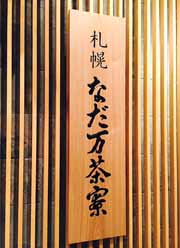 札幌
なだ万茶寮